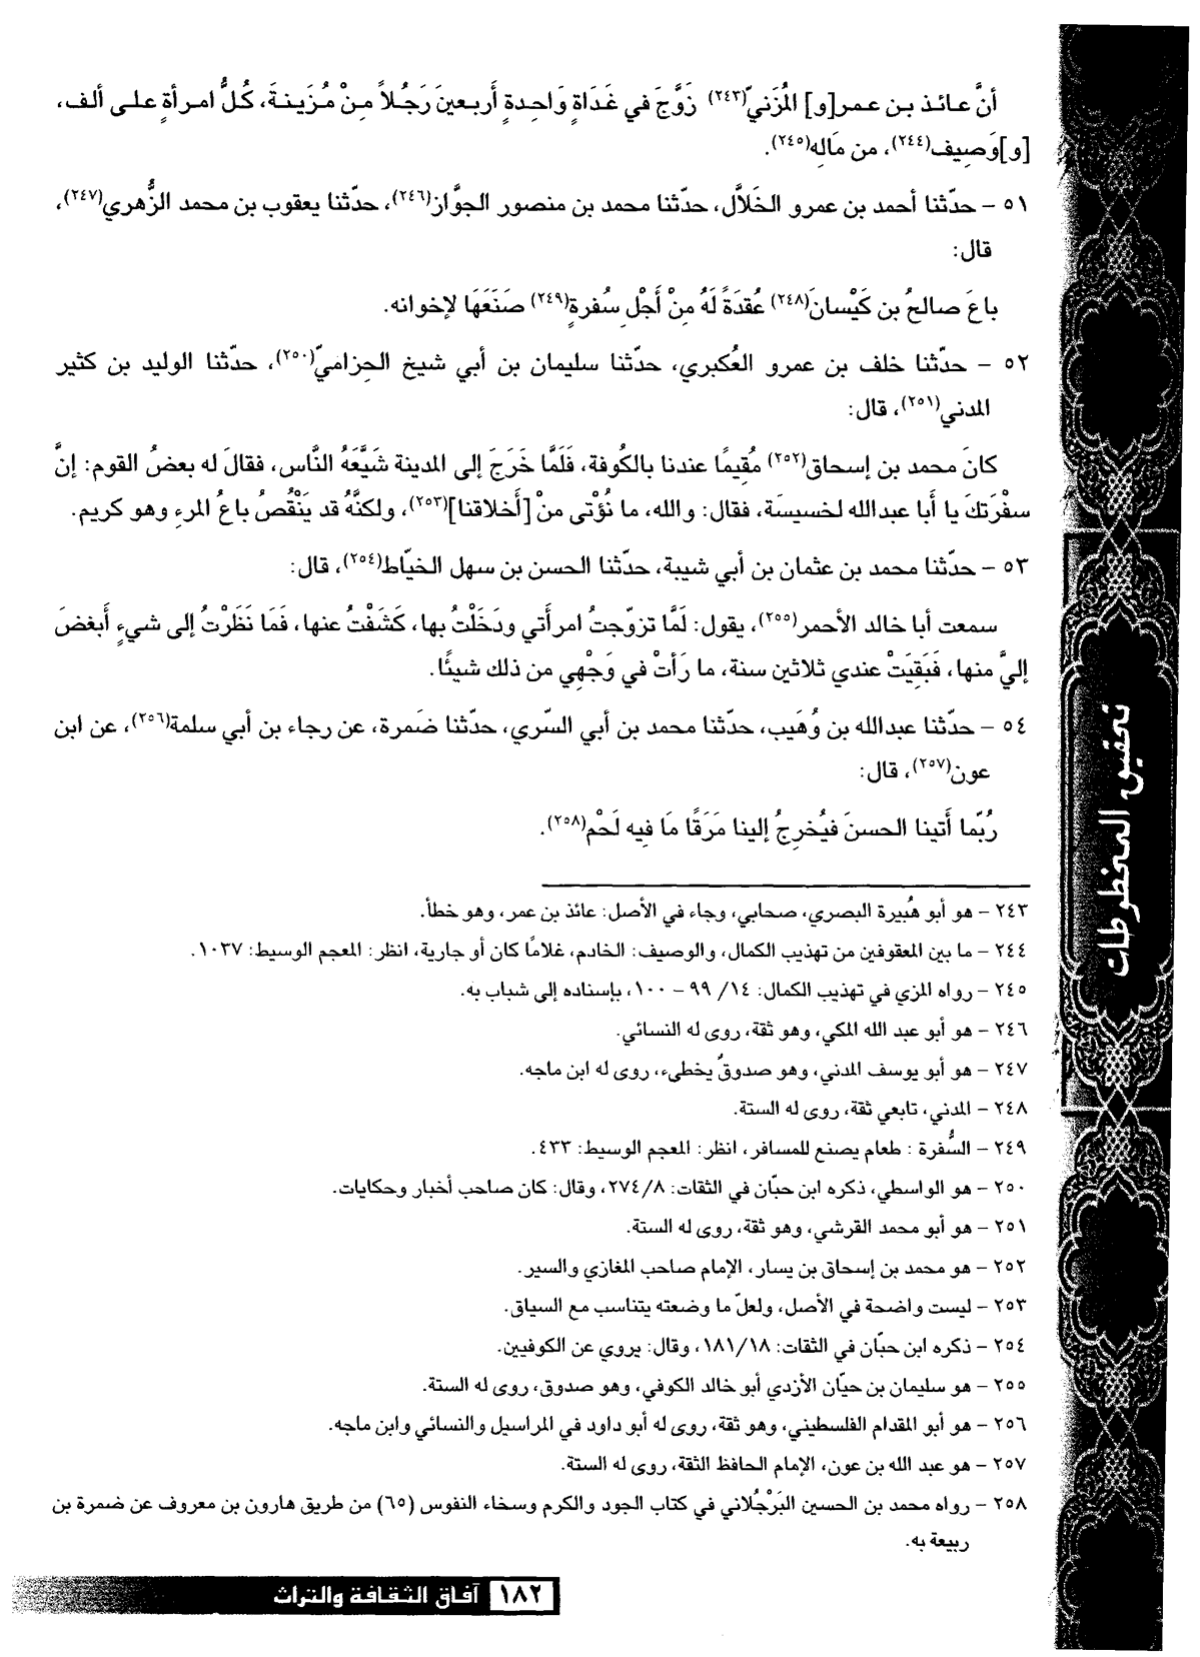 أنَّ عائذ بن عمر[و] المُزَنيّ(٢٤٣) زَوَّجَ في غَدَاةٍ وَاحِدةٍ أَربعينَ رَجُلاً مِنْ مُزَينةَ، كُلُّ امرأةٍ على ألف،
[و]وَصِيف(٢٤٤)، من مَالِه(٢٤٥).
٥١ – حدّثنا أحمد بن عمرو الخَلاَّل، حدّثنا محمد بن منصور الجوَّاز(٢٤٦)، حدّثنا يعقوب بن محمد الزُّهري(٢٤٧)،
قال:
باعَ صالحُ بن كَيْسانَ(٢٤٨) عُقدَةً لَهُ مِنْ أَجْلِ سُفرةٍ(٢٤٩) صَنَعَهَا لإخوانه.
٥٢ – حدّثنا خلف بن عمرو العُكبري، حدّثنا سليمان بن أبي شيخ الحِزاميّ(٢٥٠)، حدّثنا الوليد بن كثير
المدني(٢٥١)، قال:
كانَ محمد بن إسحاق(٢٥٢) مُقِيمًا عندنا بالكُوفة، فَلَمَّا خَرَجَ إلى المدينة شَيَّعَهُ النَّاس، فقالَ له بعضُ القوم: إنَّ
سفْرَتكَ يا أَبا عبدالله لخسيسَة، فقال: والله، ما نُؤْتى منْ [أَخلاقنا](٢٥٣)، ولكنَّهُ قد يَنْقُصُ باعُ المرءِ وهو كريم.
٥٣ – حدّثنا محمد بن عثمان بن أبي شيبة، حدّثنا الحسن بن سهل الخيّاط(٢٥٤)، قال:
سمعت أبا خالد الأحمر(٢٥٥)، يقول: لَمَّا تزوّجتُ امرأَتي ودَخَلْتُ بها، كَشَفْتُ عنها، فَمَا نَظَرْتُ إلى شيءٍ أَبغضَ
إليَّ منها، فَبَقِيَتْ عندي ثلاثين سنة، ما رَأتْ في وَجْهِي من ذلك شيئًا.
٥٤ – حدّثنا عبدالله بن وُهَيب، حدّثنا محمد بن أبي السّري، حدّثنا ضَمرة، عن رجاء بن أبي سلمة(٢٥٦)، عن ابن
عون(٢٥٧)، قال:
رُبّما أَتينا الحسنَ فيُخرِجُ إلينا مَرَقًا مَا فيه لَحْم(٢٥٨).
٢٤٣ – هو أبو هُبيرة البصري، صحابي، وجاء في الأصل: عائذ بن عمر، وهو خطأ.
٢٤٤ – ما بين المعقوفين من تهذيب الكمال، والوصيف: الخادم، غلامًا كان أو جارية، انظر: المعجم الوسيط: ١٠٣٧.
٢٤٥ – رواه المزي في تهذيب الكمال: ١٤/ ٩٩ – ١٠٠، بإسناده إلى شباب به.
٢٤٦ – هو أبو عبد الله المكي، وهو ثقة، روى له النسائي.
٢٤٧ – هو أبو يوسف المدني، وهو صدوقٌ يخطىء، روى له ابن ماجه.
٢٤٨ – المدني، تابعي ثقة، روى له الستة.
٢٤٩ – السُّفرة : طعام يصنع للمسافر، انظر: المعجم الوسيط: ٤٣٣.
٢٥٠ – هو الواسطي، ذكره ابن حبّان في الثقات: ٢٧٤/٨، وقال: كان صاحب أخبار وحكايات.
٢٥١ – هو أبو محمد القرشي، وهو ثقة، روى له الستة.
٢٥٢ – هو محمد بن إسحاق بن يسار، الإمام صاحب المغازي والسير.
٢٥٣ – ليست واضحة في الأصل، ولعلّ ما وضعته يتناسب مع السياق.
٢٥٤ – ذكره ابن حبّان في الثقات: ١٨١/١٨، وقال: يروي عن الكوفيين.
٢٥٥ – هو سليمان بن حيّان الأزدي أبو خالد الكوفي، وهو صدوق، روى له الستة.
٢٥٦ – هو أبو المقدام الفلسطيني، وهو ثقة، روى له أبو داود في المراسيل والنسائي وابن ماجه.
٢٥٧ – هو عبد الله بن عون، الإمام الحافظ الثقة، روى له الستة.
٢٥٨ – رواه محمد بن الحسين البَرْجُلاني في كتاب الجود والكرم وسخاء النفوس (٦٥) من طريق هارون بن معروف عن ضمرة بن
ربيعة به.
تحقيق المخطوطات
١٨٢ آفاق الثقافة والتراث